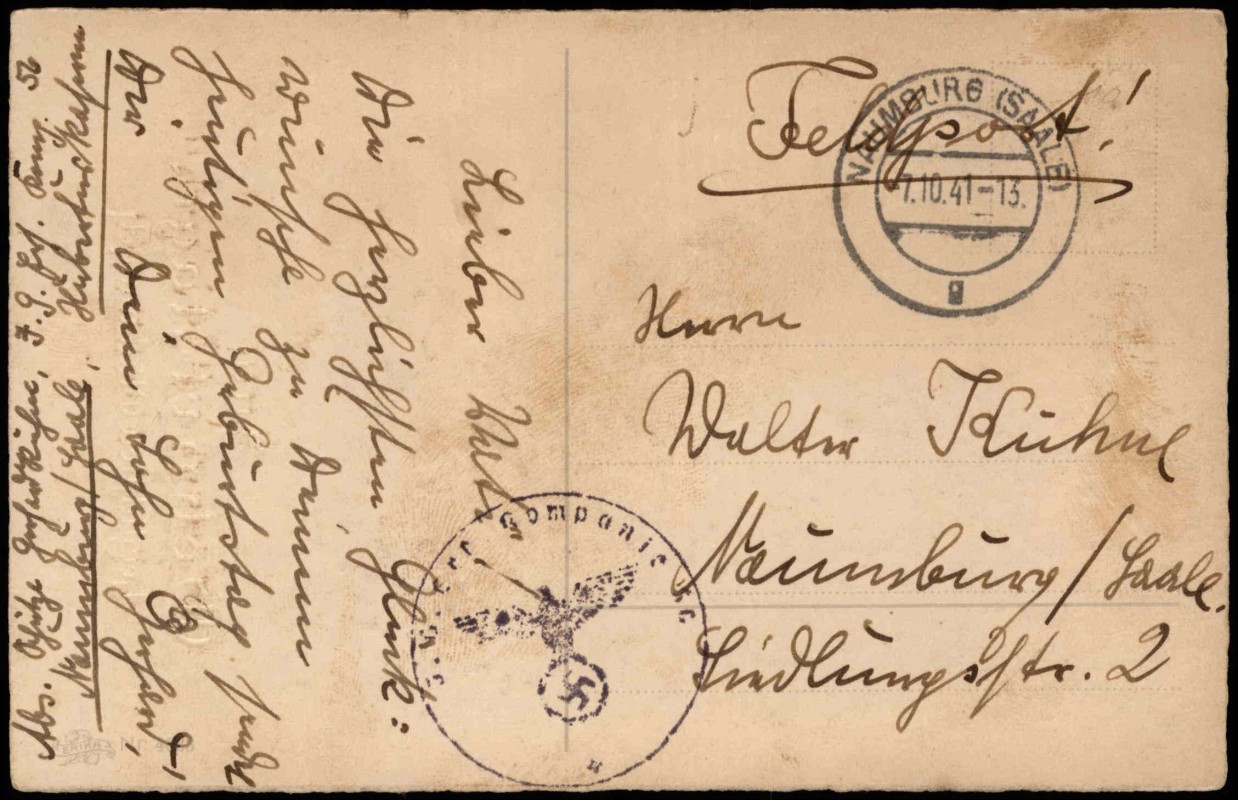 Feldpost!
NAUMBURG (SAALE)
7.10.41-13.
g
Herrn
Walter Kühne
Naumburg/Saale.
Siedlungsstr. 2
Lieber
Die herzlichsten Glück:
wünsche zu Deinem
heutigen Geburtstag sendet
Dir Dein Sohn Gerhard
Abs. Schütze Gerhard Kühne, 3.
Naumburg/Saale,
Kompanie
Nr. 4